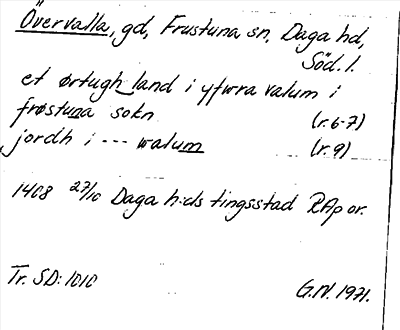 Övervalla, gd, Frustuna sn, Daga hd,
Söd. l.
et ørtugh land i yfwra valum i
frøstuna sokn (r. 6-7)
jordh i --- walum (r. 9)
1408 27/10 Daga h:ds tingsstad RAp or.
Tr. SD: 1010
G.W. 1971.